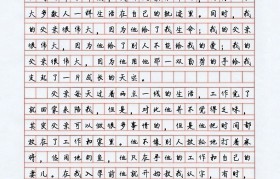 大多数人一样生活在自己的轨道里。同时，我
的父亲很伟大，因为他给了我生命；我的父亲
很伟大，因为他给了别人不能给我的爱；我的
父亲很伟大，因为他用他那一双勤劳的手给我
支起了一片成长的天空。
父亲每天过着两点一线的生活，工作完了
就回家来陪我，但是，对此他并不觉得乏味，
其实父亲可以做很多事情的，但是他把时间都
放在了工作和家里。他不像别人
他只在乎他的工作和自己的
妻儿。在我入学前他就开始教我认字，有时，